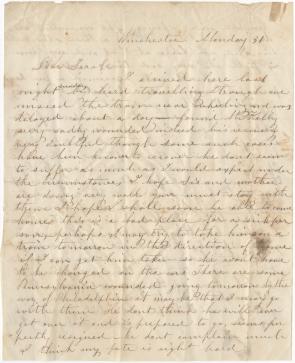 Winchester Monday 31
Dear Sarah
I arrived here last
night had hard travelling through we
missed the train near Berkeley and was
delayed about a day found
very sadly wounded indeed his recovery
very doubtful though some such cases
have been known to recover he dont seem
to suffer as much as I would expect under
the circumstances I hope Sis and mother
are doing well now you must stay with
them I hope I shall soon be able to come
home this is a bad place for a
perhaps I may try to take him on a
train tomorrow in the direction of home
if I can get him taken so he wont have
to be changed on the cars there are some
Pennsylvania wounded going tomorrow by the
way of Philadelphia it may be that I may go
with them He dont think he will ever
get over it and is prepared to go seems per
fectly resigned he dont complain much
I think my fate is right hard